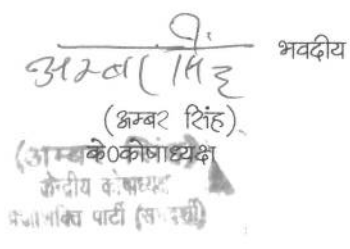 भवदीय
अम्बर सिंह
(अम्बर सिंह)
के0कोषाध्यक्ष
(अम्बर
केन्द्रीय कोषाध्यक्ष
पार्टी